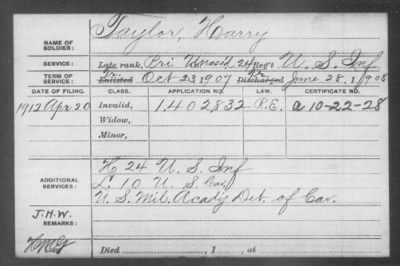 Taylor, Harry
NAME OF SOLDIER:
SERVICE: Late rank, Pri Unassd 24 Reg't U. S. Inf
TERM OF SERVICE: Enlisted Fr. Oct 23 1907 Discharged To. June 28, 1908
DATE OF FILING. CLASS. APPLICATION NO. LAW. CERTIFICATE NO.
1912 Apr 20 Invalid, 1402832 R.E. a 10-22-28
Widow,
Minor,
ADDITIONAL SERVICES: H 24 U. S. Inf
L. 10 U. S. Cav
U. S. Mil. Acady Det. of Cav.
J.H.W.
REMARKS:
Died , 1 , at